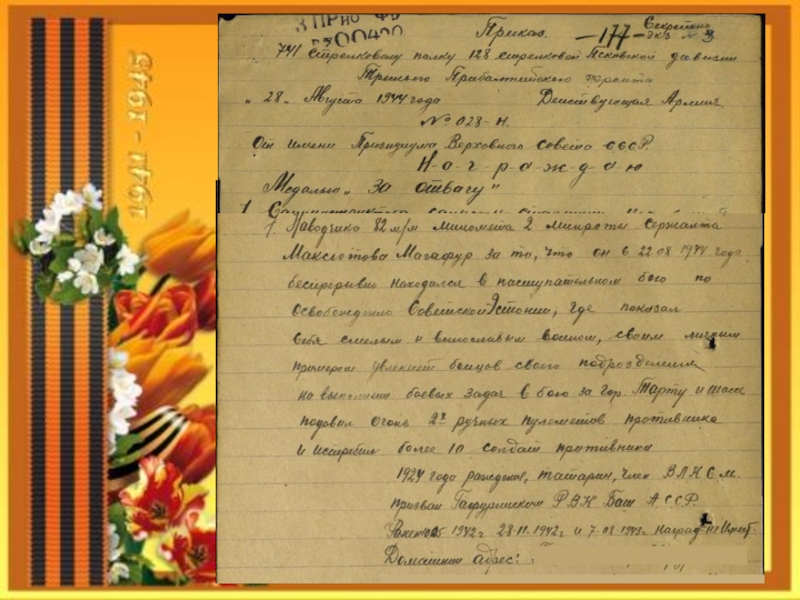 1941 - 1945
Приказ. -177- Секретно
экз № 3
741 стрелковому полку 128 стрелковой Псковской дивизии
Третьего Прибалтийского фронта
"28" Августа 1944 года Действующая Армия
№ 023-Н.
От имени Президиума Верховного Совета СССР.
Н-а-г-р-а-ж-д-а-ю
Медалью "За отвагу"
1.
7. Наводчика 82 м/м миномета 2 минроты сержанта
Магафур за то, что он с 22.08 1944 года
беспрерывно находился в наступательном бою по
освобождению Советской Эстонии, где показал
себя смелым и воином, своим личным
примером увлекает бойцов своего подразделения
на боевых задач в бою за гор. Тарту и шоссе
подавил огонь 2х ручных пулеметов противника
и истребил более 10 солдат противника
1924 года рождения, татарин, член ВЛКСМ.
призван Гафурийском РВК Баш АССР.
1942г 28.11.1942г и 7.08.1943г
Домашний адрес: